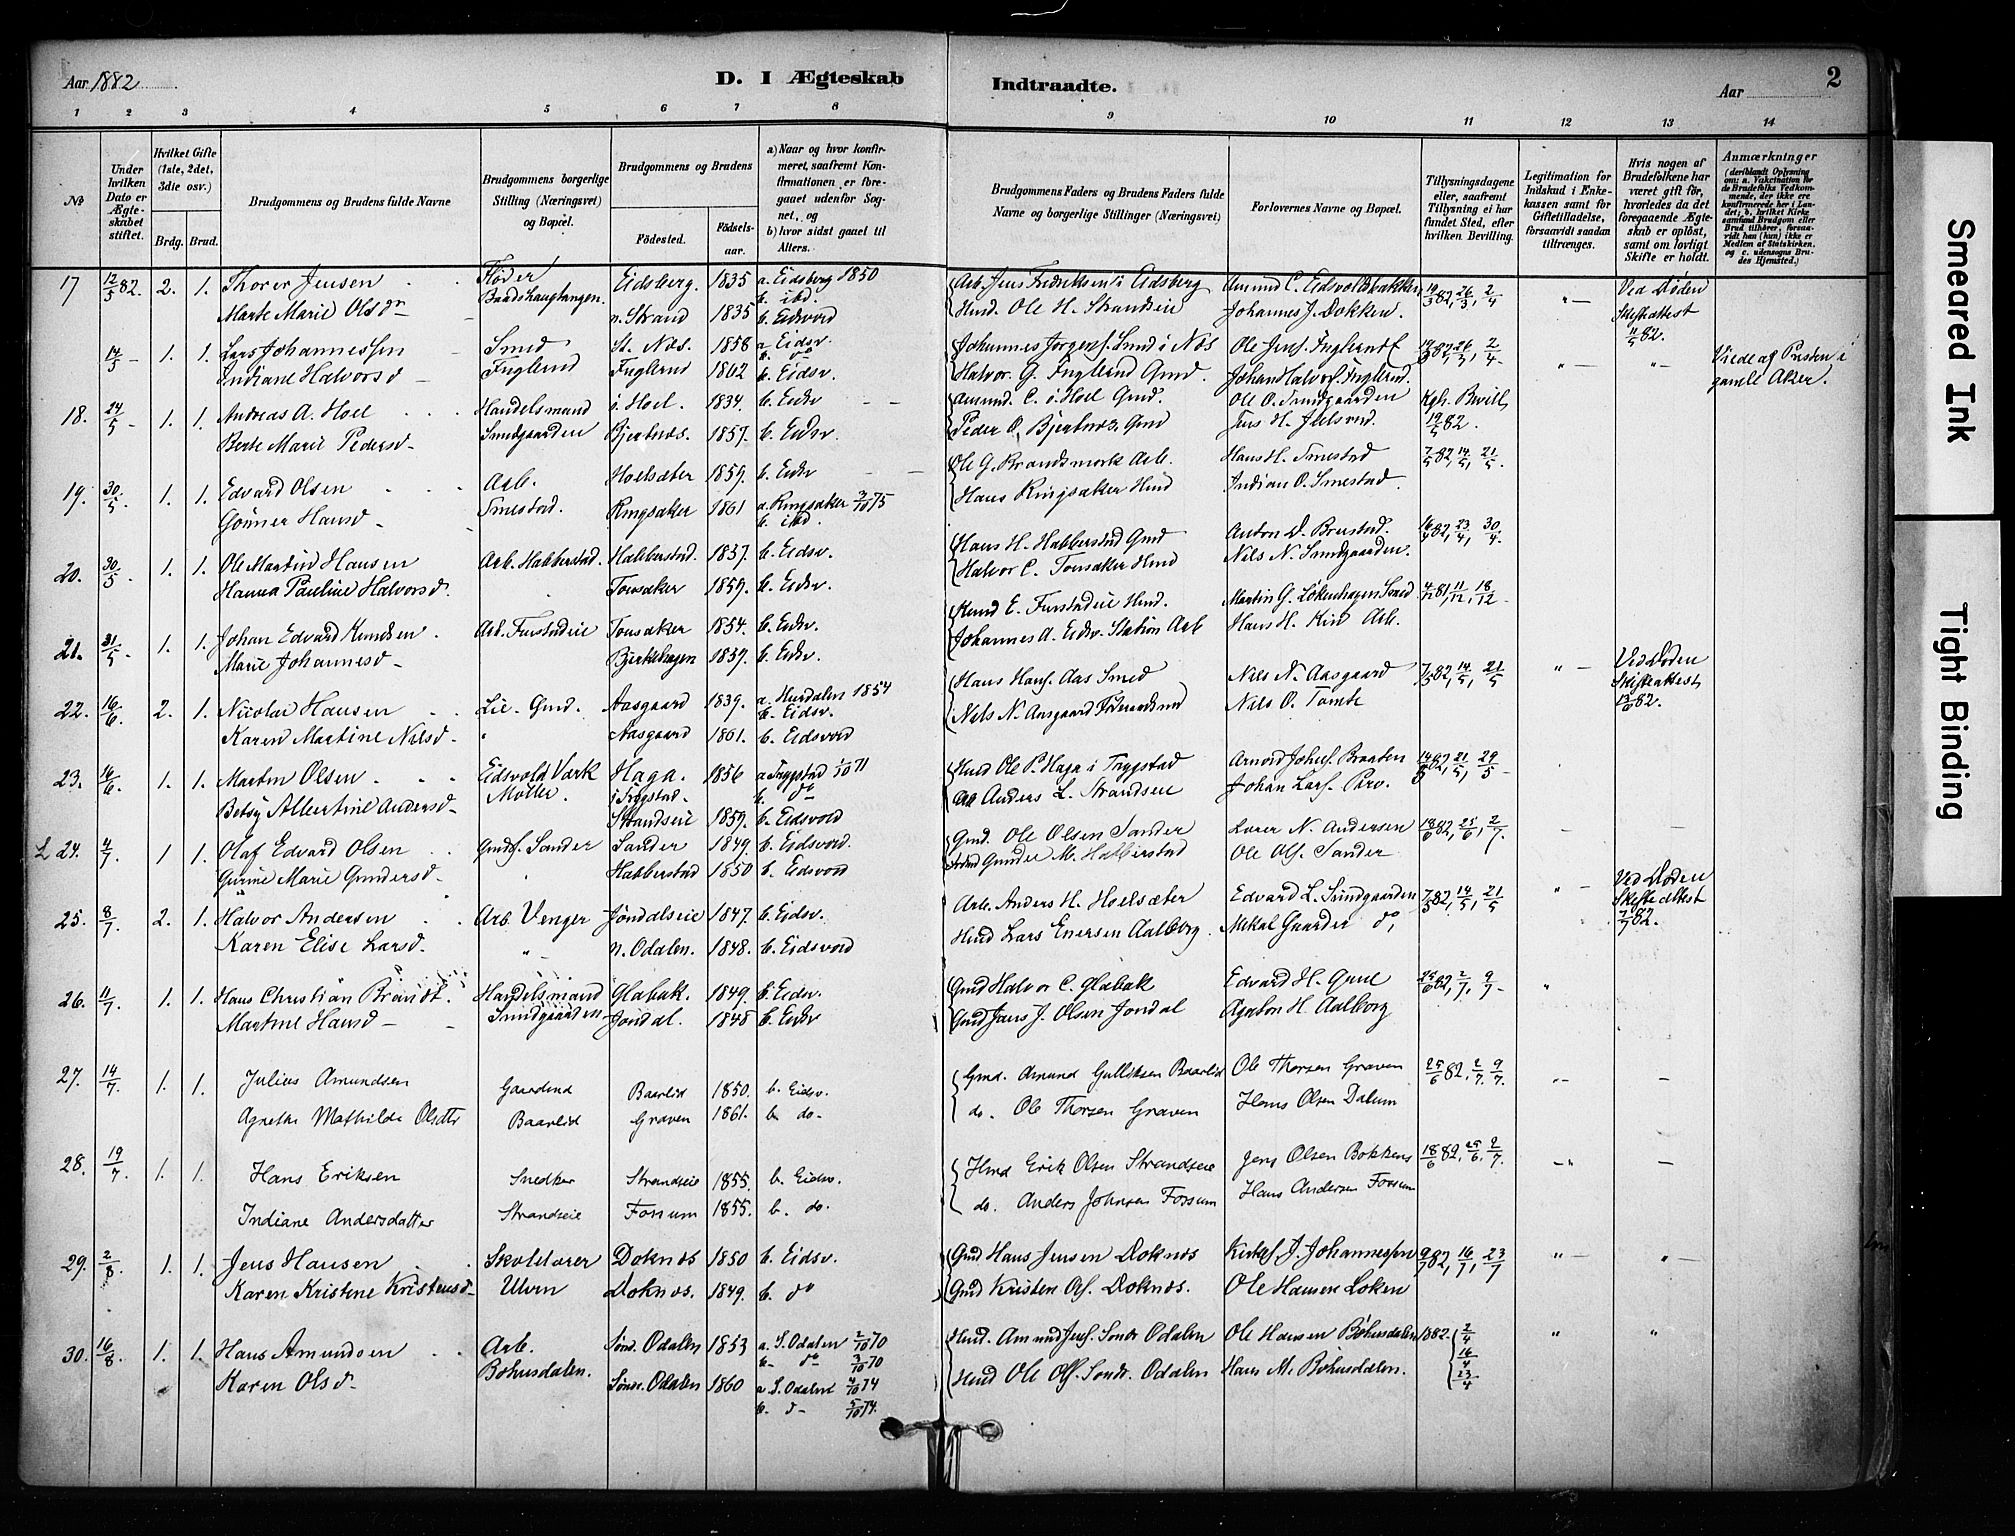 Aar 1882
D. I Ægteskab Indtraadte.
Aar
2
1 2 3 4 5 6 7 8 9 10 11 12 13 14
No
Under hvilken Dato er Ægteskabet stiftet.
Hvilket Gifte (1ste, 2det, 3die osv.)
Brdg. Brud.
Brudgommens og Brudens fulde Navne
Brudgommens borgerlige Stilling (Næringsvei) og Bopæl.
Brudgommens og Brudens
Fødested. Fødselsaar.
a) Naar og hvor konfirmeret, saafremt Konfirmationen er foregaaet udenfor Sognet, og
b) hvor sidst gaaet til Alters.
Brudgommens Faders og Brudens Faders fulde Navne og borgerlige Stillinger (Næringsvei)
Forlovernes Navne og Bopæl.
Tillysningsdagene eller, saafremt Tillysning ei har fundet Sted, efter hvilken Bevilling.
Legitimation for Indskud i Enkekassen samt for Giftetilladelse, forsaavidt saadan tiltrænges.
Hvis nogen af Brudefolkene har været gift før, hvorledes da det foregaaende Ægteskab er opløst, samt om lovligt Skifte er holdt.
Anmærkninger (deriblandt Oplysning om: a. Vakcination for de Brudefolks Vedkommende, der ikke ere konfirmerede her i Landet; b. hvilket Kirkesamfund Brudgom eller Brud tilhører, forsaavidt han (hun) ikke er Medlem af Statskirken, og c. udensogns Brudes Hjemsted.)
17 12/5 82. 2. 1. Thorer Jensen Fløder Eidsberg. 1835 a. Eidsberg 1850 Arb. Jens Fredriksen i Eidsberg Amund C. Eidsvoldsbakken 19/3 82, 26/3, 2/4 Ved Døden
Marte Marie Olsdr Baadshaugtangen. n. Strand 1835 b. ibd. b. Eidsvold Husmd. Ole H. Strandeie Johannes J. Dokken. Skifteattest
14/5 1. 1. Lars Johannessen Smed St. Næs. 1858 a Eidsv. b. do Johannes Jørgens. Smed i Næs Ole Jens. Fuglerud 82, 26/3, 2/4 Viede af Presten i gamle Aker.
Indiane Halvorsd Fuglerud Fuglerud 1862 b. Eidsv. Halvor G. Fuglerud Gmd. Johan Halvors. Fuglerud.
18. 24/5 1. 1. Andreas A. Hoel Handelsmand ø. Hoel. 1834. b. Eidsv Amund C. ø. Hoel Gmd. Ole O. Sundgaarden Kgh. Bevill,
Berte Marie Pedersd Sundgaarden Bjerknæs. 1857. b. Eidsv. Peder O. Bjerknæs. Gmd 19/5 82.
19. 30/5 1. 1. Edvard Olsen Arb. Hoelsæter 1859. b. Eidsv Ole G. Brandsmork Arb. Hans H. Smestad 7/5 82, 14/5, 21/5
Hansd Smestad. Ringsaker 1861 a. Ringsaker 3/10 75 b. ibd. Hans Ringsaker Indian O. Smestad.
20. 30/5 1. 1. Ole Martin Hansen Arb. Habberstad. Habberstad. 1837. b. Eidsv. Hans H. Habberstad Gmd Anton D. Brustad. 16/4 82, 23/4, 30/4
Hanna Pauline Halvorsd. Tonsaker 1859. b. Eidsv. Halvor C. Tonsaker Nils N. Sundgaarden.
21. 31/5 1. 1. Johan Edvard Knudsen. Arb. Finstadeie Tonsaker 1854. b. Eidsv. Knud E. Finstadeie Martin G. Løkenhagen Smed 4/12 81, 11/12, 18/12
Marie Johannesd Bjerkehagen 1859. b. Eidsv. Johannes A. Eidsv. Station Arb Hans H. Arb.
22. 16/6 2. 1. Nicolai Hansen Lie. Gmd. Aasgaard 1839. a. Hurdalen 1854 b. Eidsv. Hans Hans. Aas Smed Nils N. Aasgaard 7/5 82, 14/5, 21/5 Ved Døden
Karen Martine Nilsd. Aasgaard 1861. b. Eidsvold Nils N. Aasgaard Nils O. Tømte Skifteattest 13/6 82.
23. 16/6 1. 1. Martin Olsen Eidsvold Værk Haga. 1856 a Trygstad 1/10 71 b. do Husmd Ole P. Haga i Trygstad Johns. Braaten 82, 21/5, 29/5
Betsy Albertine Andersd Møller. i Trygstad. Strandeie 1859. b. Eidsvold Arb Anders L. Strandeie Johan Lars.
24. 4/7 1 1. Olaf Edvard Olsen Gmds. Sander Sander 1849. b. Eidsvold. Gmd. Ole Olsen Sander N. Andersen 18/6 82, 25/6, 2/7.
Gurine Marie Gundersd. Habberstad 1850 b. Eidsvold Gunder M. Habberstad Ole Ols. Sander
25. 8/7 2. 1. Halvor Andersen Arb. Venger Jøndalseie 1847. b. Eidsv. Arb. Anders H. Hoelsæter Edvard L. Sundgaarden 7/5 82, 14/5, 21/5 Ved Døden
Karen Elise Larsd. n. Odalen. 1848. b. Eidsvold Lars Enersen Aalborg. Mikal Gaarder do, Skifteattest 82.
26. 11/7 1. 1. Hans Christian Brandt. Handelsmand Glabak. 1849. b. Eidsv. Gmd Halvor C. Glabak Edvard H. 25/6 82, 2/7, 9/7
Martine Hansd Sundgaarden Jøndal. 1848 b. Eidsv Gmd J. Olsen Jøndal Agaton H. Aalborg
27. 14/7 1. 1. Julius Amundsen Gaardmd Baarlid 1850. b. Eidsv. Gmd. Amund Gulliksen Baarlid Ole Thorsen Graven 25/6 82, 2/7. 9/7.
Agnethe Mathilde Olsdtr Baarlid Graven 1861. b. do. do. Ole Thorsen Graven Hans Olsen Dalum
28. 19/7 1. 1. Hans Eriksen Snedker Strandseie 1855. b. Eidsv. Hmd Erik Olsen Strandseie Jens Olsen Bokkens 18/6 82, 25/6, 2/7.
Indiane Andersdatter Strandseie Fossum 1855. b. do. do. Anders Johnsen Fossum Hans Andersen Fossum
29. 2/8. 1. 1. Jens Hansen Skolelærer Doknæs 1850 b. Eidsv. Gmd Hans Jensen Doknæs Kirkes. J. Johannessen 9/7 82, 16/7, 23/7
Karen Kristine Kristensd. Ulven Doknæs. 1849. b. do Gmd Kristen Ols. Doknæs. Ole Hansen Løken
30. 16/8. 1. 1. Hans Amundsen Arb. Sønd. Odalen 1853 a. S. Odalen 2/10 70 b. do 3/10 70 Husmd. Amund Jens. Søndr Odalen Ole Hansen Bøhnsdalen 1882. 2/4 16/4 23/4
Karen Olsd. Bøhnsdalen. Søndr. Odalen 1860 a S. Odalen 4/10 74 b. do 5/10 74. Husmd Ole Ols. Søndr. Odalen Hans M. Bøhnsdalen.
Smeared Ink
Tight Binding